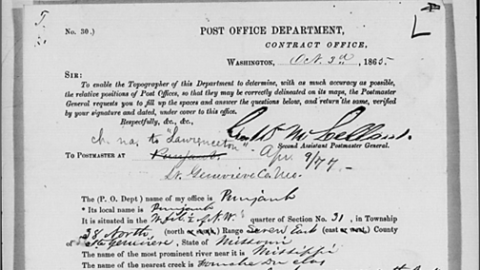 T.
No. 30.)
POST OFFICE DEPARTMENT,
CONTRACT OFFICE,
WASHINGTON, Oct. 3rd, 1865
SIR:
To enable the Topographer of this Department to determine, with as much accuracy as possible,
the relative positions of Post Offices, so that they may be correctly delineated on its maps, the Postmaster
General requests you to fill up the spaces and answer the questions below, and return the same, verified
by your signature and dated, under cover to this office.
Respectfully, &c., &c.,
Geo W McLellan
ch. na. to "Lawrenceton"
Second Assistant Postmaster General.
TO POSTMASTER AT Punjaub. Apr 9/77
St. Genevieve Co. Mo.
The (P. O. Dept) name of my office is Punjaub
Its local name is Punjaub
It is situated in the W. of N.W. quarter of Section No. 31, in Township
38 North, (north or south,) Range Seven East (east or west,) County
of Ste Genevieve, State of Missouri
The name of the most prominent river near it is Mississippi
The name of the nearest creek is